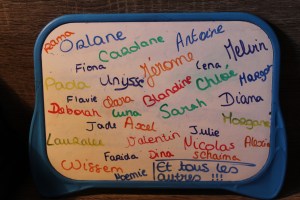 Rama Orlane Caroline Antoine Melvin
Fiona Jérôme Lena
Paola Ulysse Chloé Margot
Flavie Clara Blandine Diana
Deborah Luna Sarah Morgane
Jade Axel Julie
Valentin Nicolas Alexia
Farida Dina Schaima
Wissem Noémie Et tous les
autres !!!